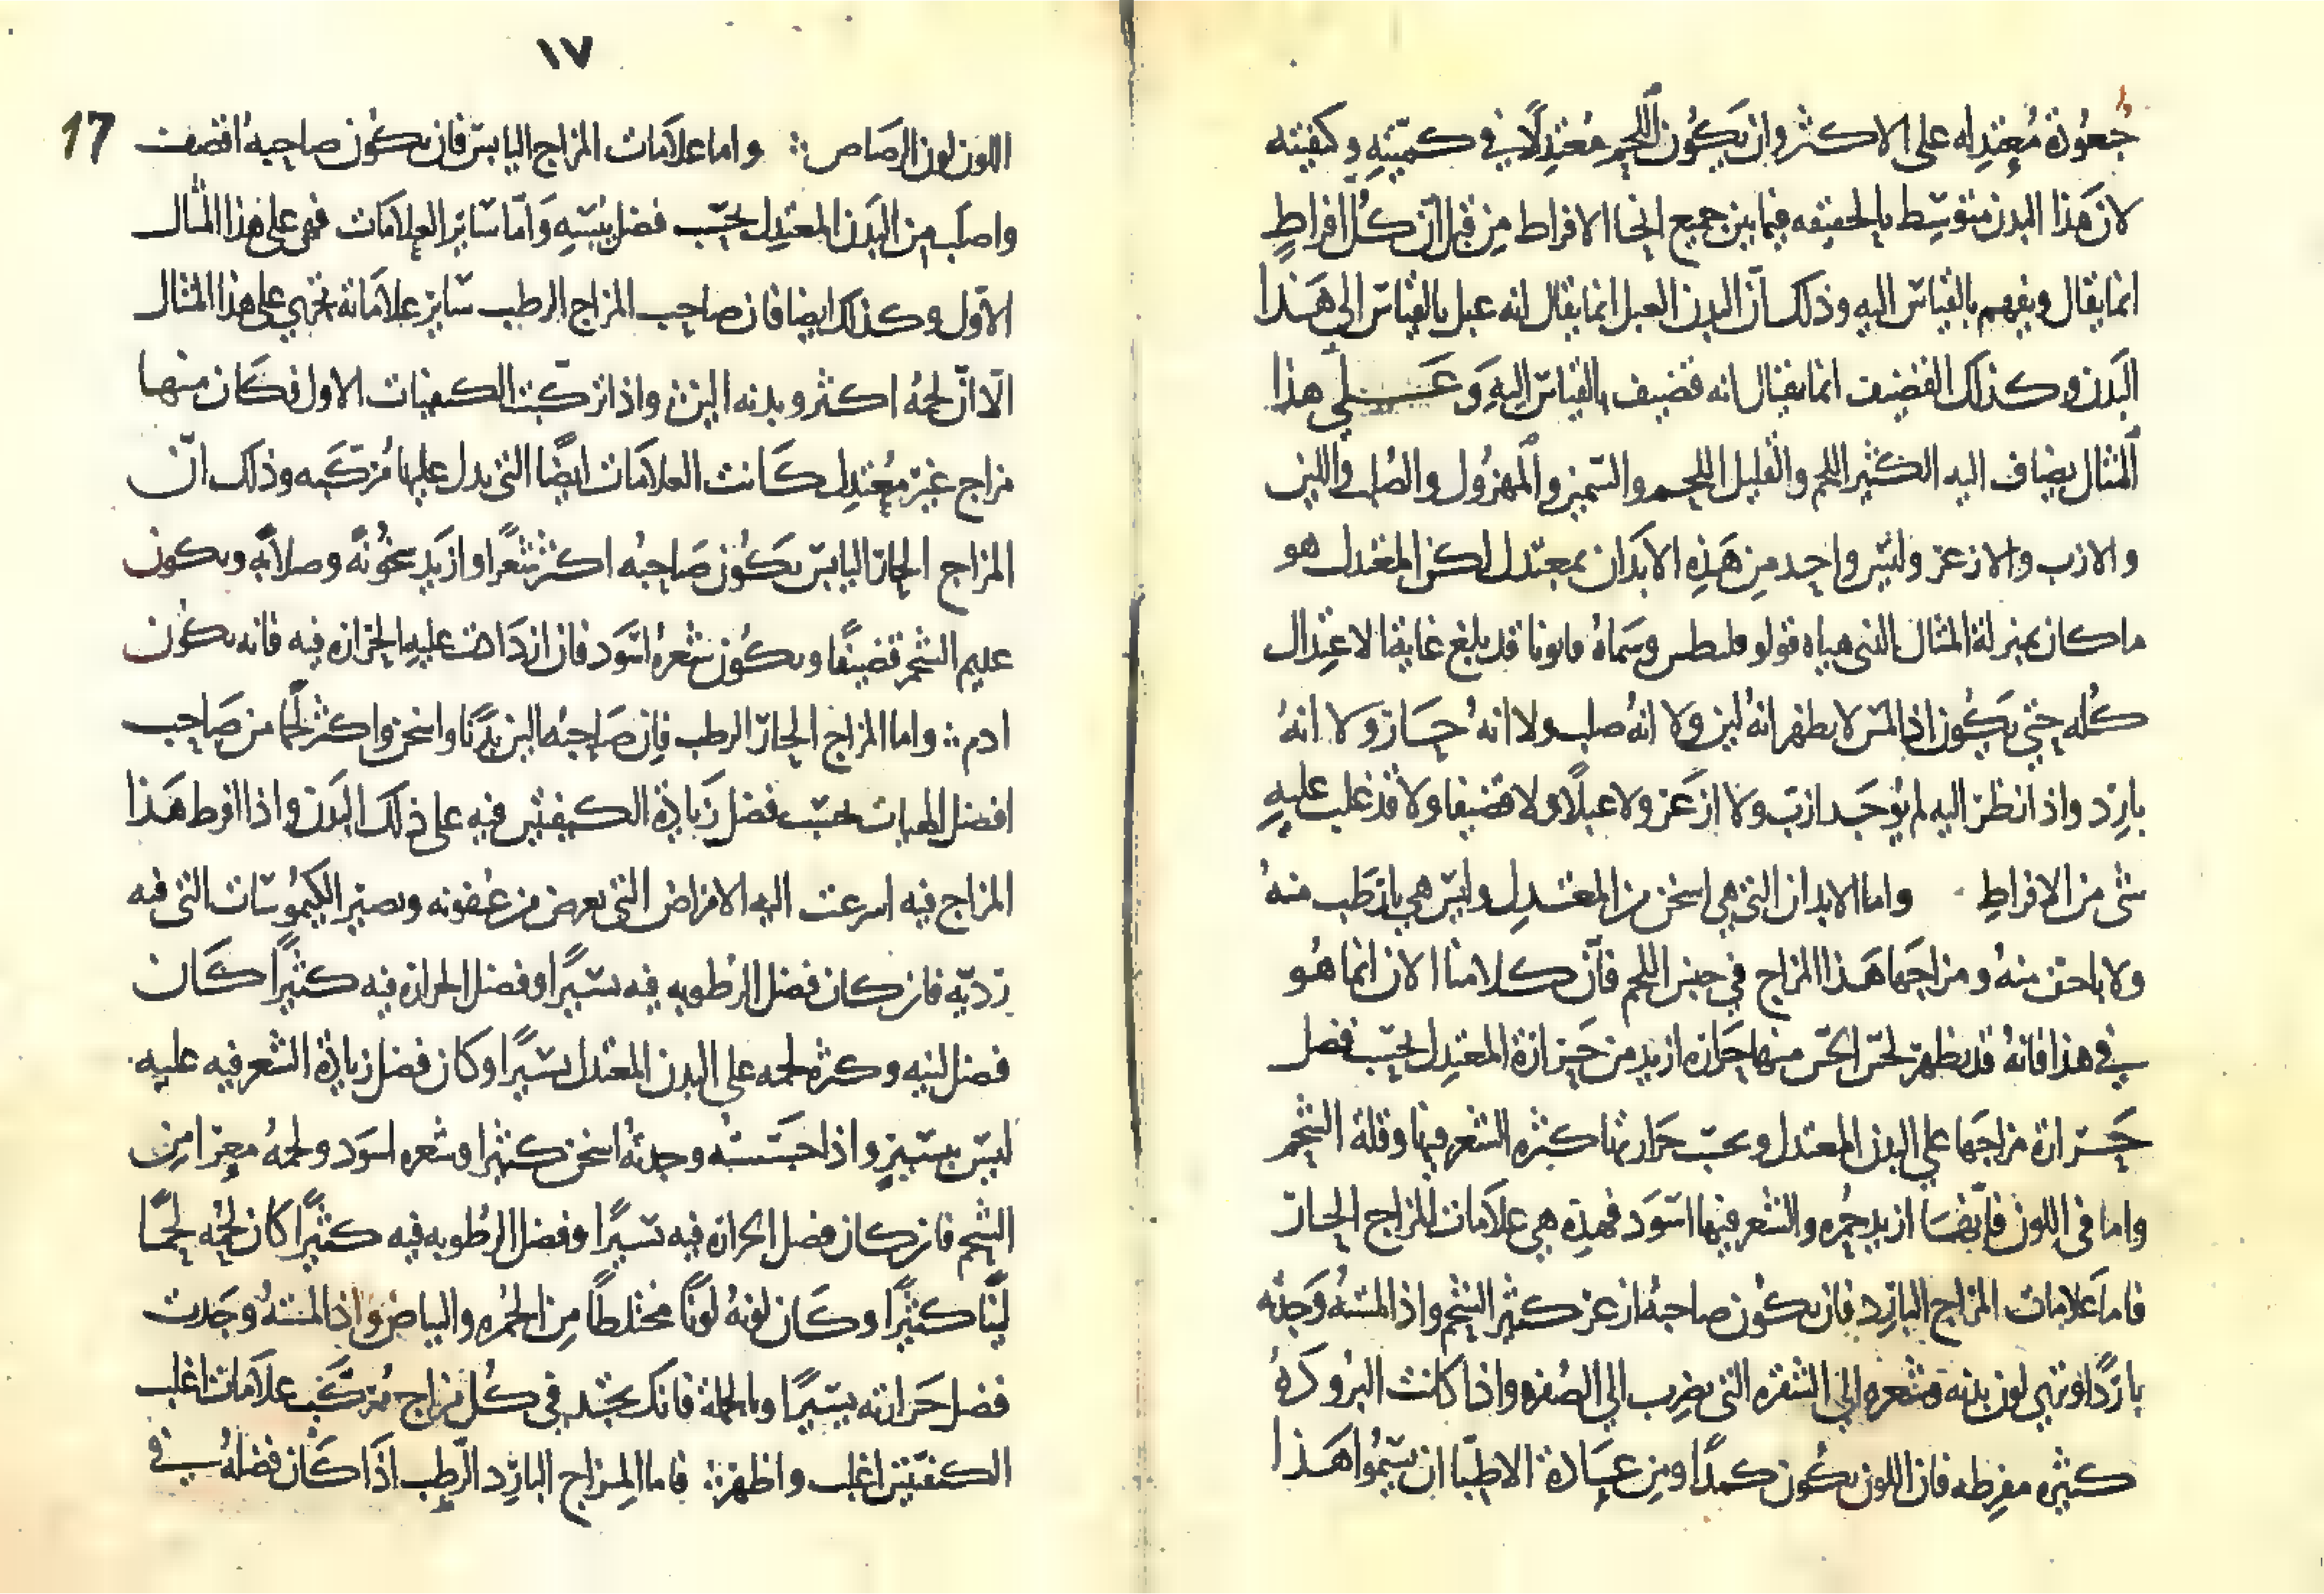 جعودة معتدله على الاكثر وان يكون اللحم معتدلا في كميته وكيفيته
لان هذا البدن متوسط بالحقيقه فيما بين جميع انحا الافراط من قبل ان كل افراط
انما يقال ويفهم بالقياس اليه وذلك ان البدن العبل انما يقال انه عبل بالقياس الى هذا
البدن وكذلك القضيف انما يقال انه قضيف بالقياس اليه وعلى هذا
المثال يضاف اليه الكثير اللحم والقليل اللحم والسمين والمهزول والصلب واللين
والازب والازعر وليس واحد من هذه الابدان بمعتدل لكن المعتدل هو
ما كان بمنزلة المثال الذى هياه قولوقليطس وسماه قانونا قد بلغ غاية الاعتدال
كله حتى يكون اذا لمس لا يظهر انه لين ولا انه صلب ولا انه حار ولا انه
بارد واذا نظر اليه لم يوجد ازب ولا ازعر ولا عبلا ولا قضيفا ولا قد غلب عليه
شى من الافراط واما الابدان التي هي اسخن من المعتدل وليس هي بارطب منه
ولا باجف منه ومزاجها هذا المزاج في جنس اللحم فان كلامنا الان انما هو
في هذا فانه قد يظهر لحس المس منها حرارة ازيد من حرارة المعتدل بحسب فضل
حرارة مزاجها على البدن المعتدل وبحسب حرارتها كثرة الشعر فيها وقلة الشحم
واما في اللون فايضا ازيد حمره والشعر فيها اسود فهذه هي علامات المزاج الحار
فاما علامات المزاج البارد فان يكون صاحبه ازعر كثير الشحم واذا لمسته وجدته
باردا وترى لون بدنه وشعره الى الشقره التي تضرب الى الصفره واذا كانت البرودة
كثيره مفرطه فان اللون يكون كمدا ومن عادة الاطبا ان يسموا هذا
١٧
17
اللون لون الرصاص واما علامات المزاج اليابس فان يكون صاحبه اقضف
واصلب من البدن المعتدل بحسب فضل يبسه واما ساير العلامات فهي على هذا المثال
الاول وكذلك ايضا فان صاحب المزاج الرطب ساير علاماته تجري على هذا المثال
الا ان لحمه اكثر وبدنه الين واذا تركبت الكيفيات الاول فكان منها
مزاج غير معتدل كانت العلامات ايضا التي يدل عليها مركبه وذلك ان
المزاج الحار اليابس يكون صاحبه اكثر شعرا وازيد سخونة وصلابة ويكون
عديم الشحم قضيفا ويكون شعره اسود فان ازدادت عليه الحرارة فيه فانه يكون
ادم واما المزاج الحار الرطب فان صاحبه الين بدنا واسخن واكثر لحما من صاحب
افضل الهيات بحسب فضل زيادة الكيفيتين فيه على ذلك البدن واذا افرط هذا
المزاج فيه اسرعت اليه الامراض التي تعرض من عفونه وتصير الكيموسات التي فيه
رديه فان كان فضل الرطوبه فيه يسيرا وفضل الحرارة فيه كثيرا كان
فضل لينه وكثرة لحمه على البدن المعتدل يسيرا وكان فضل زيادة الشعر فيه عليه
ليس بيسير واذا جسسته وجدته اسخن كثيرا وشعره اسود ولحمه معرا من
الشحم فان كان فضل الحرارة فيه يسيرا وفضل الرطوبه فيه كثيرا كان لحمه لحما
لينا كثيرا وكان لونه لونا مختلطا من الحمره والبياض واذا لمسته وجدت
فضل حرارته يسيرا وبالجملة فانك تجد في كل مزاج مركب علامات اغلب
الكيفيتين اغلب واظهر فاما المزاج البارد الرطب اذا كان فضله في